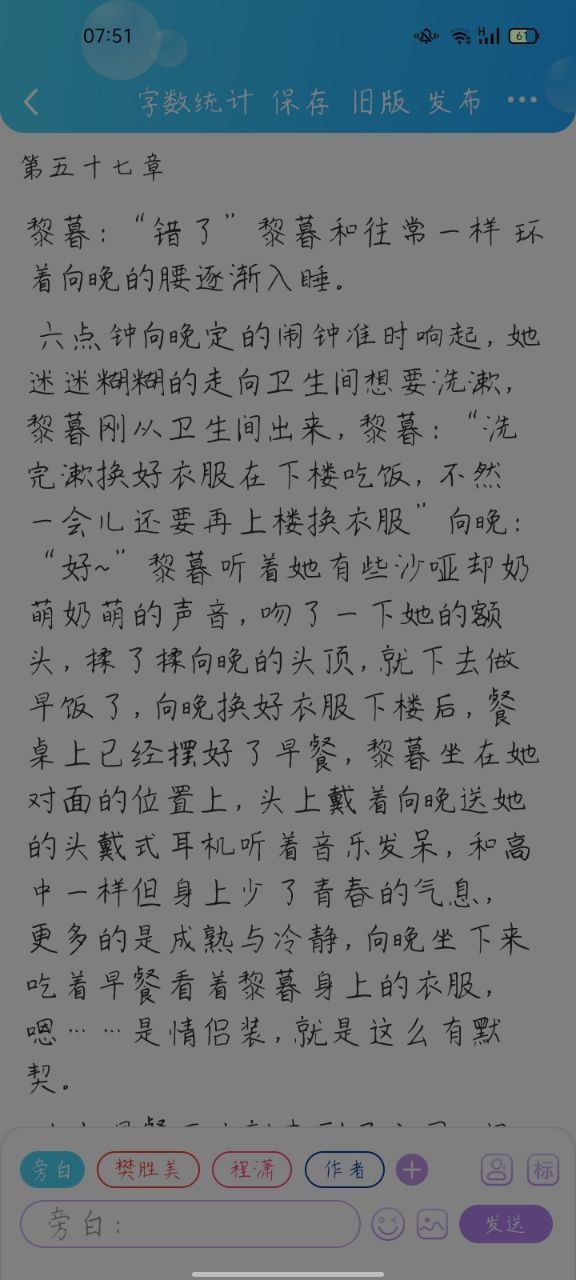 07:51
61
字数统计 保存 旧版 发布
第五十七章
黎暮：“错了”黎暮和往常一样环
着向晚的腰逐渐入睡。
六点钟向晚定的闹钟准时响起，她
迷迷糊糊的走向卫生间想要洗漱，
黎暮刚从卫生间出来，黎暮：“洗
完漱换好衣服在下楼吃饭，不然
一会儿还要再上楼换衣服”向晚：
“好~”黎暮听着她有些沙哑却奶
萌奶萌的声音，吻了一下她的额
头，揉了揉向晚的头顶，就下去做
早饭了，向晚换好衣服下楼后，餐
桌上已经摆好了早餐，黎暮坐在她
对面的位置上，头上戴着向晚送她
的头戴式耳机听着音乐发呆，和高
中一样但身上少了青春的气息，
更多的是成熟与冷静，向晚坐下来
吃着早餐看着黎暮身上的衣服，
嗯……是情侣装，就是这么有默
契。
旁白 樊胜美 程潇 作者 标
旁白： 发送